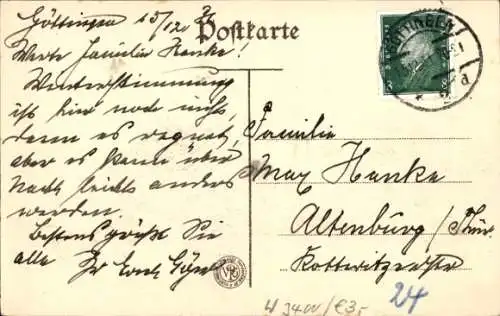 Göttingen 15/12
Postkarte
Werte Familie Hanke!
Winterstimmung
ist hier noch nicht,
denn es regnet,
aber es kann über
Nacht leicht anders
werden.
Bestens grüßt Sie
alle Ihr Erich
Familie
Max Hanke
Altenburg/Thür.
Kottwitzstr
24
3400/€3,-
GÖTTINGEN
8